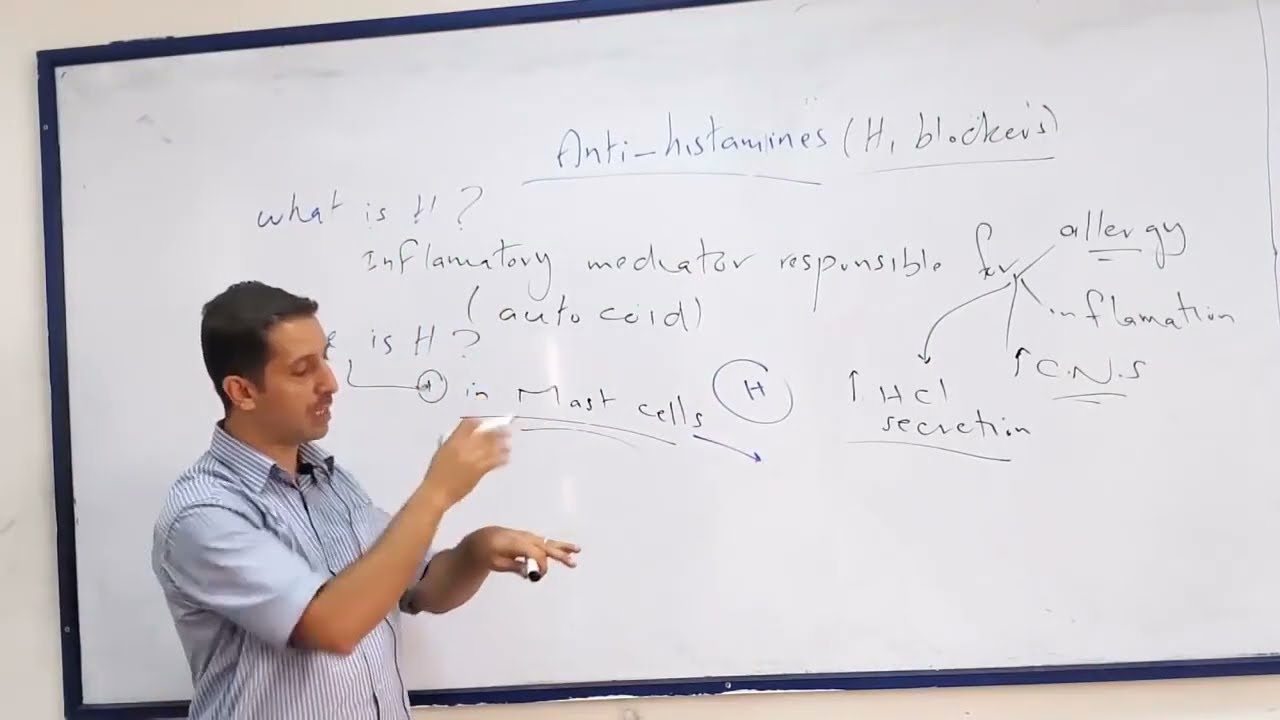 Anti-histamines (H, blockers)
what is H?
Inflamatory mediator responsible for
allergy
inflamation
↑ C.N.S
↑ HCl
secretion
(autocoid)
is H?
+ in Mast cells
H